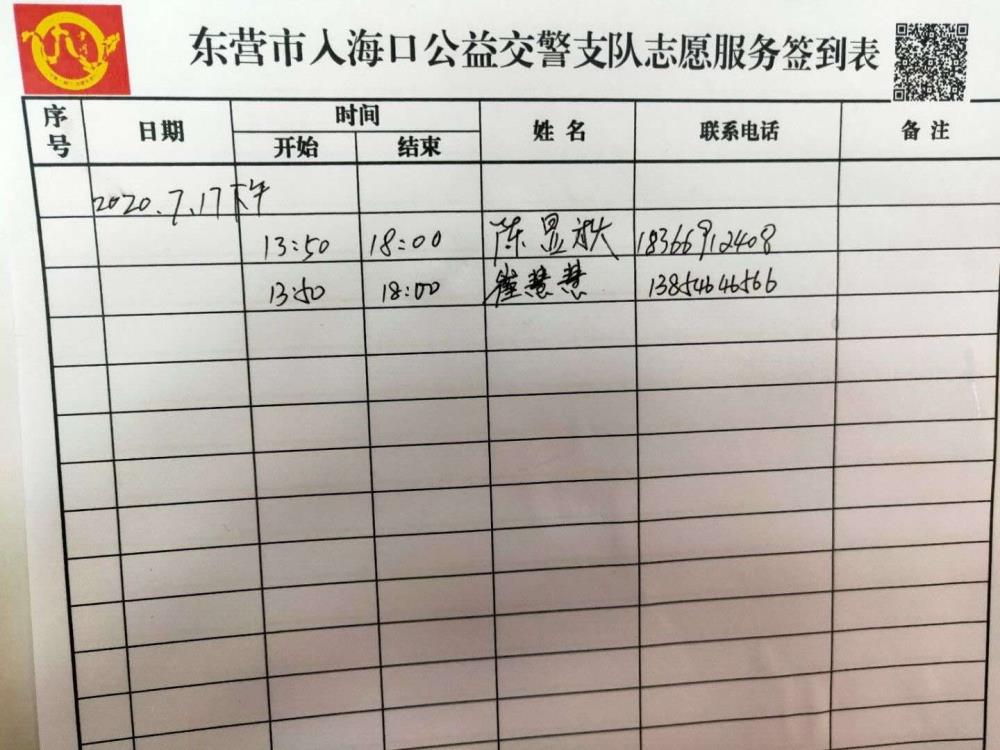 东营市入海口公益交警支队志愿服务签到表
序号 日期 时间 姓名 联系电话 备注
开始 结束
2020.7.17下午
13:50 18:00 陈显 18366912408
13:50 18:00 崔慧慧 13854646566